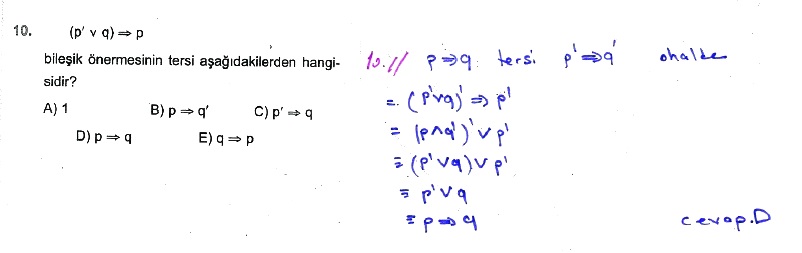 10. (p' v q) ⇒ p
bileşik önermesinin tersi aşağıdakilerden hangi-
sidir?
A) 1 B) p ⇒ q' C) p' ⇒ q
D) p ⇒ q E) q ⇒ p
10.// p ⇒ q tersi p' ⇒ q' ohalde
≡ (p' v q)' ⇒ p'
≡ (p ∧ q')' v p'
≡ (p' v q) v p'
≡ p' v q
≡ p ⇒ q
cevap.D